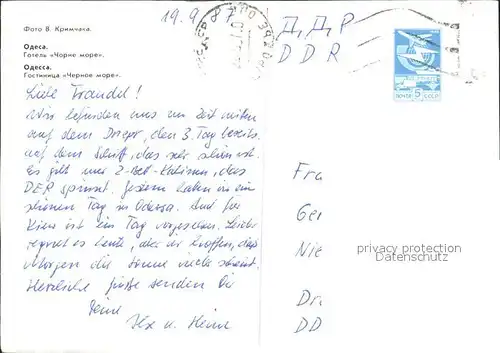 Фото В. Кримчака.
19.9.87
Одеса.
Готель «Чорне море».
Одесса.
Гостиница «Черное море».
Д Д Р
DDR
ПОЧТА 5 СССР
Liebe Traudel!
Wir befinden uns zur Zeit mitten
auf dem Dnepr, den 3. Tag bereits
auf dem Schiff, das sehr schön ist.
Es gibt nur 2-Bett-Kabinen, das
DER spinnt. Gestern hatten wir ein
schönen Tag in Odessa. Und für
Kiew ist ein Tag vorgesehen. Leider
regnet es heute, aber wir hoffen, daß
morgen die Sonne wieder scheint.
Herzliche Grüße senden Dir
Deine
u. Heinz
Fra
Ger
Nie
Dr
DD
privacy protection
Datenschutz